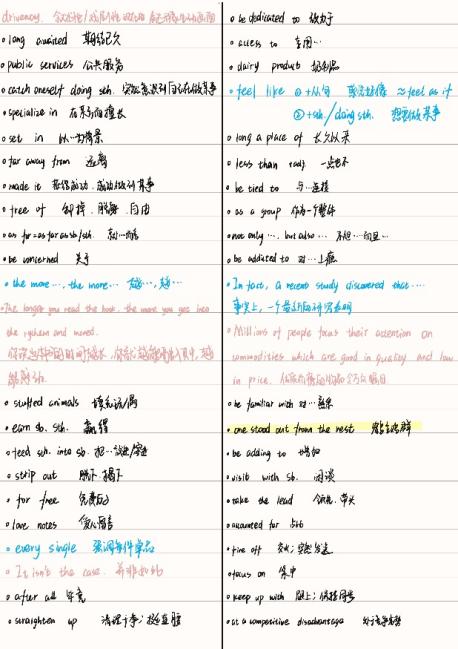 • long awaited 期待已久
• public services 公共服务
• catch oneself doing sth. 突然意识到自己在做某事
• specialize in 在某方面擅长
• set in 以…为背景
• far away from 远离
• made it 获得成功，成功做到某事
• free of 卸掉，脱离，自由
• as for = as far as sb/sth. 就…而言
• be concerned 关于
• the more…, the more… 越…，越…
• The longer you read the book, the more you get into
the rythem and mored.
• stuffed animals 填充玩偶
• earn sb. sth. 赢得
• feed sth. into sb. 把…
• strip out 脱下，揭下
• for free 免费的
• love notes 爱心留言
• every single 强调每件单品
• It isn't the case. 并非如此
• after all 毕竟
• straighten up 清理干净；挺直腰
• be dedicated to 致力于
• access to
• dairy product 奶制品
• feel like ① + 从句 ≈ feel as if
② + sth./doing sth. 想要做某事
• long a place of 长久以来
• less than + adj. 一点也不
• be tied to 与…连接
• as a group 作为一个整体
• not only …, but also … 不但…而且…
• be addicted to 对…上瘾
• In fact, a recent study discovered that …
事实上，一个最近的研究表明
• Millions of people focus their attention on
commodities which are good in quality and low
in price.
• be familiar with 对…熟悉
• one stood out from the rest
• be adding to 增加
• visit with sb. 闲谈
• take the lead 领先，带头
• accounted for 占比
• fire off
• focus on 集中
• keep up with 跟上；保持同步
• at a competitive disadvantage 处于竞争劣势